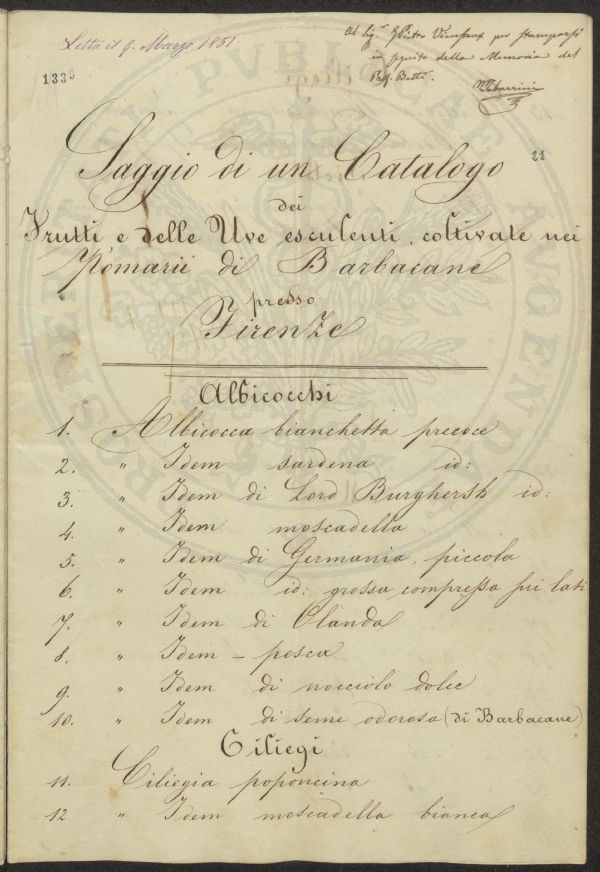 Letta il 9. Marzo 1851
Al Sig.r Pietro Vieusseux per stamparsi
in seguito della Memoria del
Prof. Betti.
1336
21
Saggio di un Catalogo
dei
Frutti e delle Uve esculenti, coltivate nei
Pomarii di Barbacane
presso
Firenze
Albicocchi
1. Albicocca bianchetta precoce
2. " Idem sardena id:
3. " Idem di Lord Burghersh id:
4. " Idem moscadella
5. " Idem di Germania, piccola
6. " Idem id: grossa, compressa sui lati
7. " Idem di Olanda
8. " Idem - pesca
9. " Idem di nocciolo dolce
10. " Idem di seme odoroso (di Barbacane)
Ciliegi
11. Ciliegia poponcina
12 " Idem moscadella bianca